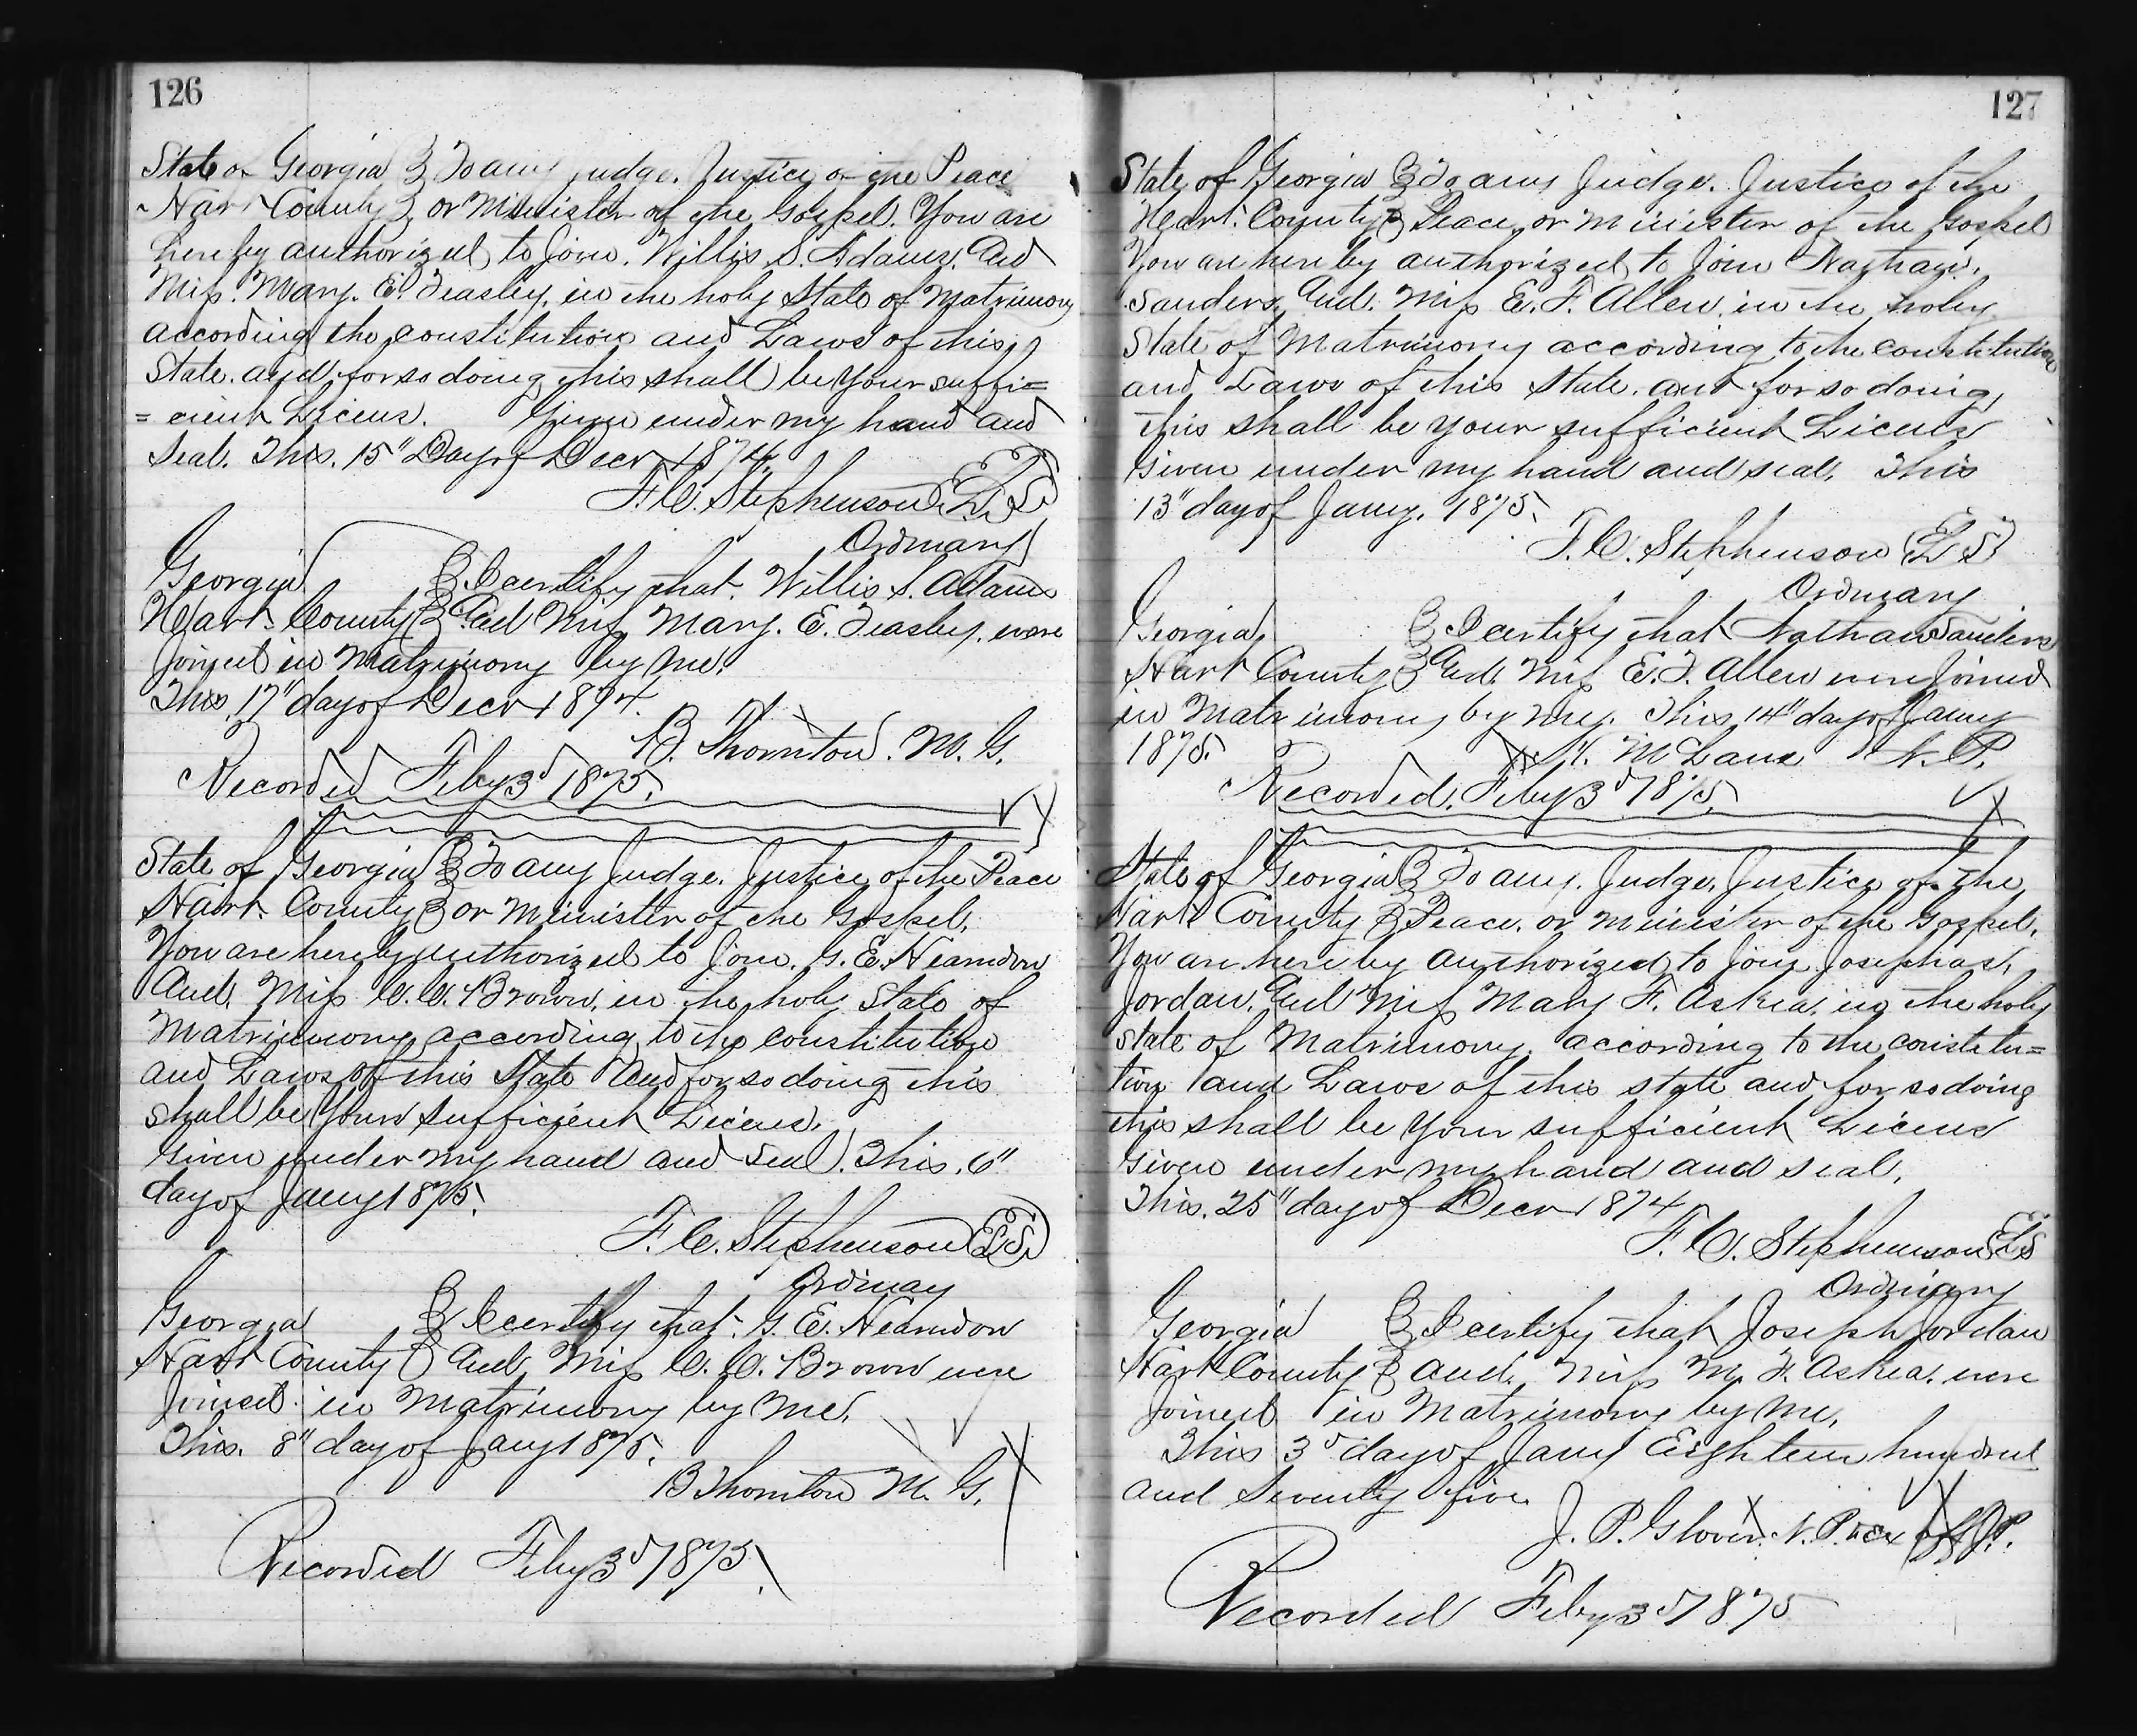 126
State of Georgia } To any judge. Justice of the Peace
Hart County } or Minister of the Gospel. You are
hereby authorized to Join. Willis S. Adams. And
Miss. Mary. E. Teasley. in the holy State of Matrimony
according the constitution and Laws of this
State. and for so doing this shall be Your suffi=
=cient Licens. Given under my hand and
Seal. This. 15" Day of Decr 1874.
F. C. Stephenson (L.S.)
Ordinary
Georgia } I certify that. Willis S. Adams
Hart County } And Miss Mary. E. Teasley. were
Joined in Matrimony by me.
This 17" day of Decr 1874.
B. Thornton. M. G.
Recorded Feby 3d 1875.
State of Georgia } To any Judge. Justice of the Peace
Hart County } or Minister of the Gospel.
You are hereby authorized to Join. G. E. Hearndon
And. Miss C. C. Brown. in the holy State of
Matrimony according to the constitution
and Laws of this State And for so doing this
shall be Your sufficient Licens.
Given under my hand and Seal. This. 6"
day of Jany 1875.
F. C. Stephenson (L.S.)
Ordinay
Georgia } I certify that. G. E. Hearndon
Hart County } And Miss C. C. Brown were
Joined in Matrimony by Me.
This. 8" day of Jany 1875.
B Thornton M. G.
Recorded Feby 3d 1875.
127
State of Georgia } To any Judge. Justice of the
Heart. County } Peace, or Minister of the Gospel
You are hereby authorized to Join Nathan.
Sanders. And. Miss E. F. Allen. in the holy
State of Matrimony according to the constitution
and Laws of this State. and for so doing,
this shall be your sufficient Licens
Given under my hand and seal. This
13" day of Jany. 1875.
F. C. Stephenson (L S)
Ordinary
Georgia, } I certify that Nathan Sanders
Hart County } And. Miss E. F. Allen were Joined
in Matrimony by my. This 14" day of Jany
1875. McLane N. P.
Recorded. Feby 3d 1875.
State of Georgia } To any. Judge. Justice of. The
Hart County } Peace. or Minister of the Gospel.
You are hereby Authorized to Join Josephas.
Jordan. And Miss Mary F. Askea. in the holy
State of Matrimony. according to the constitu=
tion and Laws of this state and for so doing
this shall be Your sufficient Licens
Given under my hand and seal.
This. 25" day of Decr 1874
F. C. Stephenson LS
Ordinary
Georgia } I certify that Joseph Jordan
Hart County } and. Miss M. F. Askea. were
Joined in Matrimony by Me.
This 3d day of Jany Eighteen hundred
and Seventy five
J. P. Glover. N. P. & ex off J.P.
Recorded Feby 3d 1875